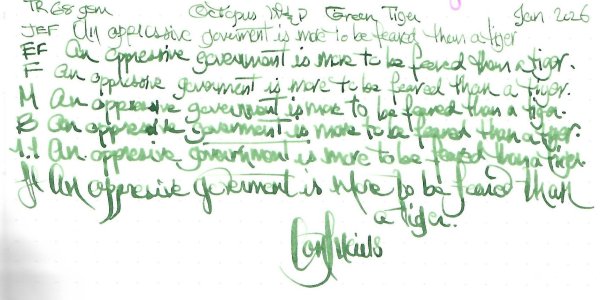 TR 68 gsm Octopus W&D Green Tiger Jan 2026
JEF An oppressive goverment is more to be feared than a tiger
EF An oppressive goverment is more to be feared than a tiger.
F An oppressive goverment is more to be feared than a tiger.
M An oppressive goverment is more to be feared than a tiger.
B An oppressive goverment is more to be feared than a tiger.
1.1 An oppressive government is more to be feared than a tiger.
An oppressive goverment is more to be feared than
a tiger.
Confucius